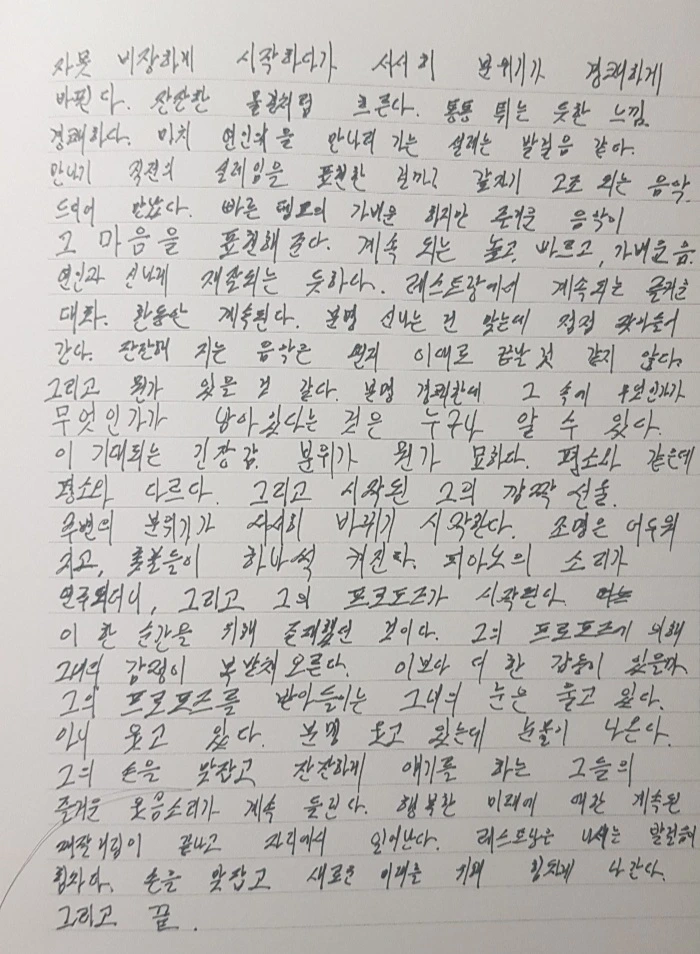 사뭇 비장하게 시작하다가 서서히 분위기가 경쾌하게
바뀐다. 잔잔한 물결처럼 흐른다. 통통 튀는 듯한 느낌.
경쾌하다. 마치 연인을 만나러 가는 설레는 발걸음 같아.
만나기 직전의 설레임을 표현한 걸까? 갑자기 고조 되는 음악.
드디어 만났다. 빠른 템포의 가벼운 하지만 즐거운 음악이
그 마음을 표현해 준다. 계속 되는 높고, 빠르고, 가벼운 음.
연인과 신나게 재잘되는 듯하다. 레스토랑에서 계속되는 즐거운
대화. 한동안 계속된다. 분명 신나는 건 맞는데 점점 잦아들어
간다. 잔잔해 지는 음악은 뭔지 이대로 끝날 것 같지 않다.
그리고 뭔가 있을 것 같다. 분명 경쾌한데 그 속에 무엇인가가
무엇인가가 남아있다는 것은 누구나 알 수 있다.
이 기대되는 긴장감. 분위가 뭔가 묘하다. 평소와 같은데
평소와 다르다. 그리고 시작된 그의 깜짝 선물.
주변의 분위기가 서서히 바뀌기 시작한다. 조명은 어두워
지고, 촛불들이 하나씩 켜진다. 피아노의 소리가
연주되더니, 그리고 그의 프로포즈가 시작된다.
이 한 순간을 위해 존재했던 것이다. 그의 프로포즈에 의해
그녀의 감정이 북받쳐 오른다. 이보다 더 한 감동이 있을까.
그의 프로포즈를 받아들이는 그녀의 눈은 울고 있다.
아니 웃고 있다. 분명 웃고 있는데 눈물이 나온다.
그의 손을 맞잡고 잔잔하게 얘기를 하는 그들의
즐거운 웃음소리가 계속 들린다. 행복한 미래에 대한 계속된
재잘거림이 끝나고 자리에서 일어난다. 레스토랑을 나서는 발걸음이
힘차다. 손을 맞잡고 새로운 미래를 기대 힘차게 나간다.
그리고 끝.